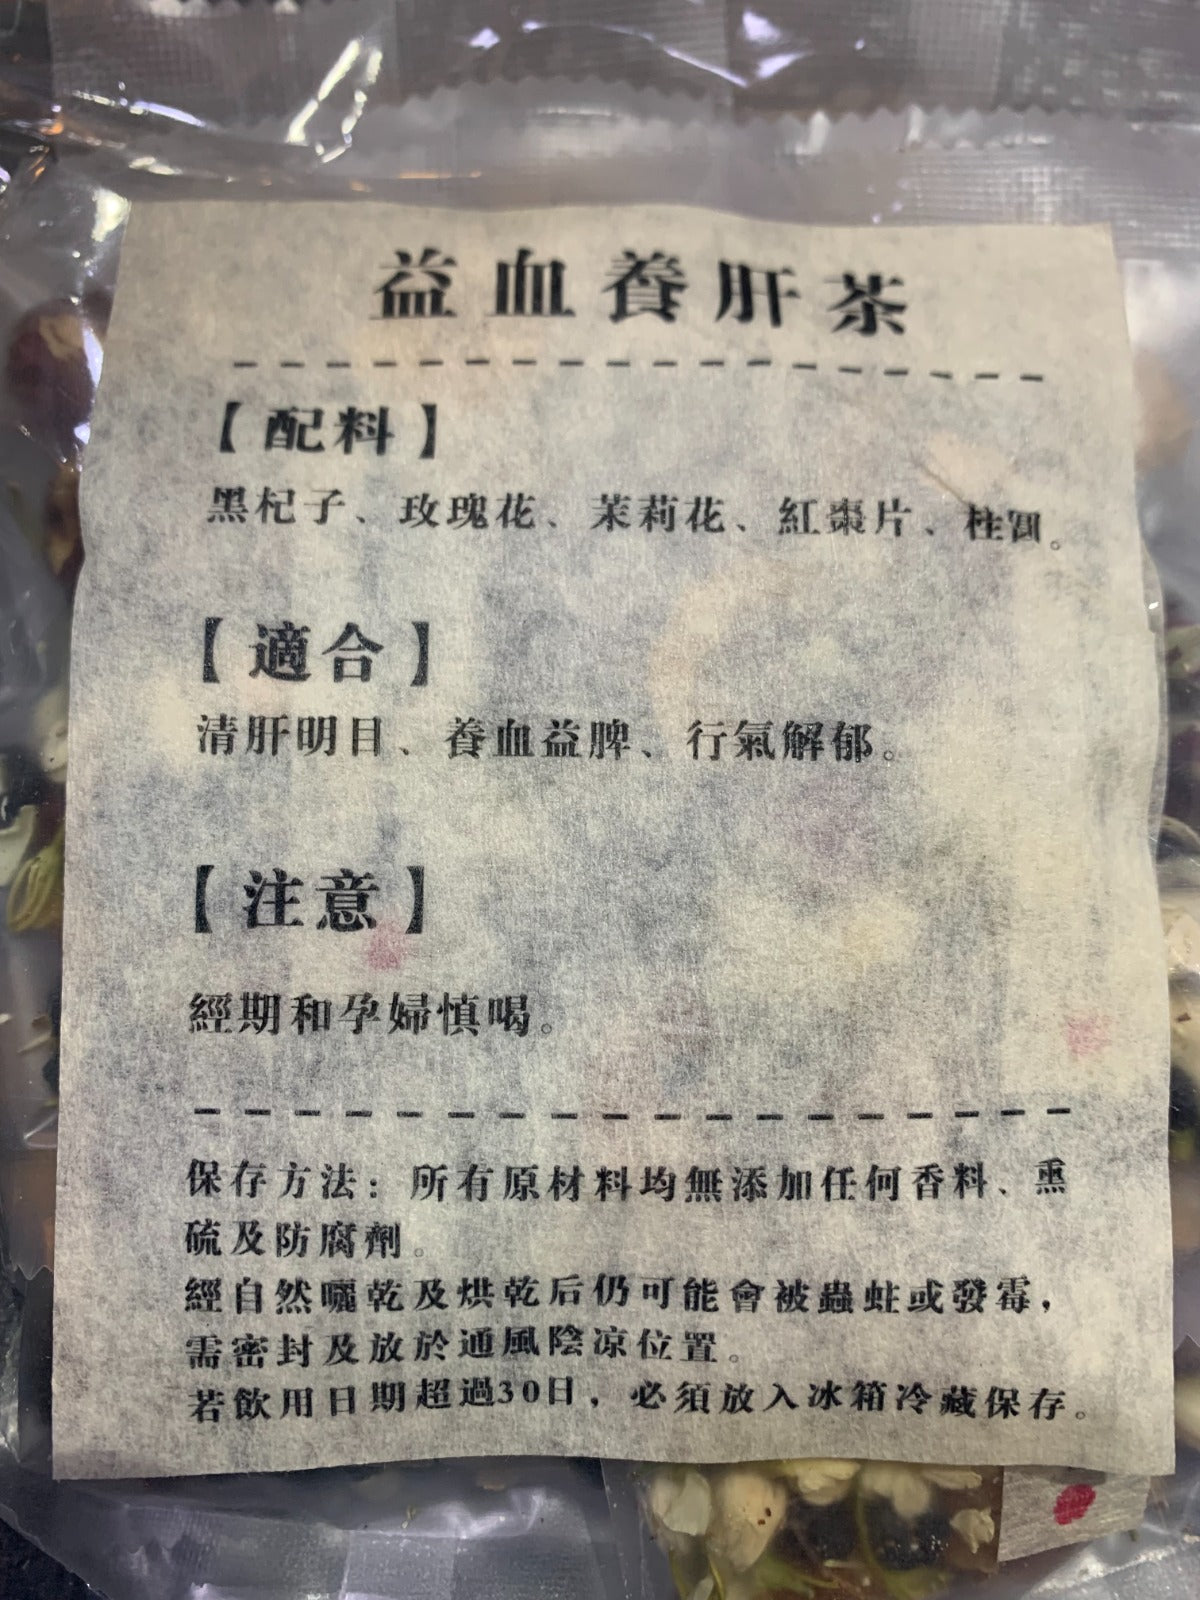 益血養肝茶
【配料】
黑杞子、玫瑰花、茉莉花、紅棗片、桂圓。
【適合】
清肝明目、養血益脾、行氣解郁。
【注意】
經期和孕婦慎喝。
保存方法：所有原材料均無添加任何香料、熏
硫及防腐劑。
經自然曬乾及烘乾后仍可能會被蟲蛀或發霉，
需密封及放於通風陰凉位置。
若飲用日期超過30日，必須放入冰箱冷藏保存。